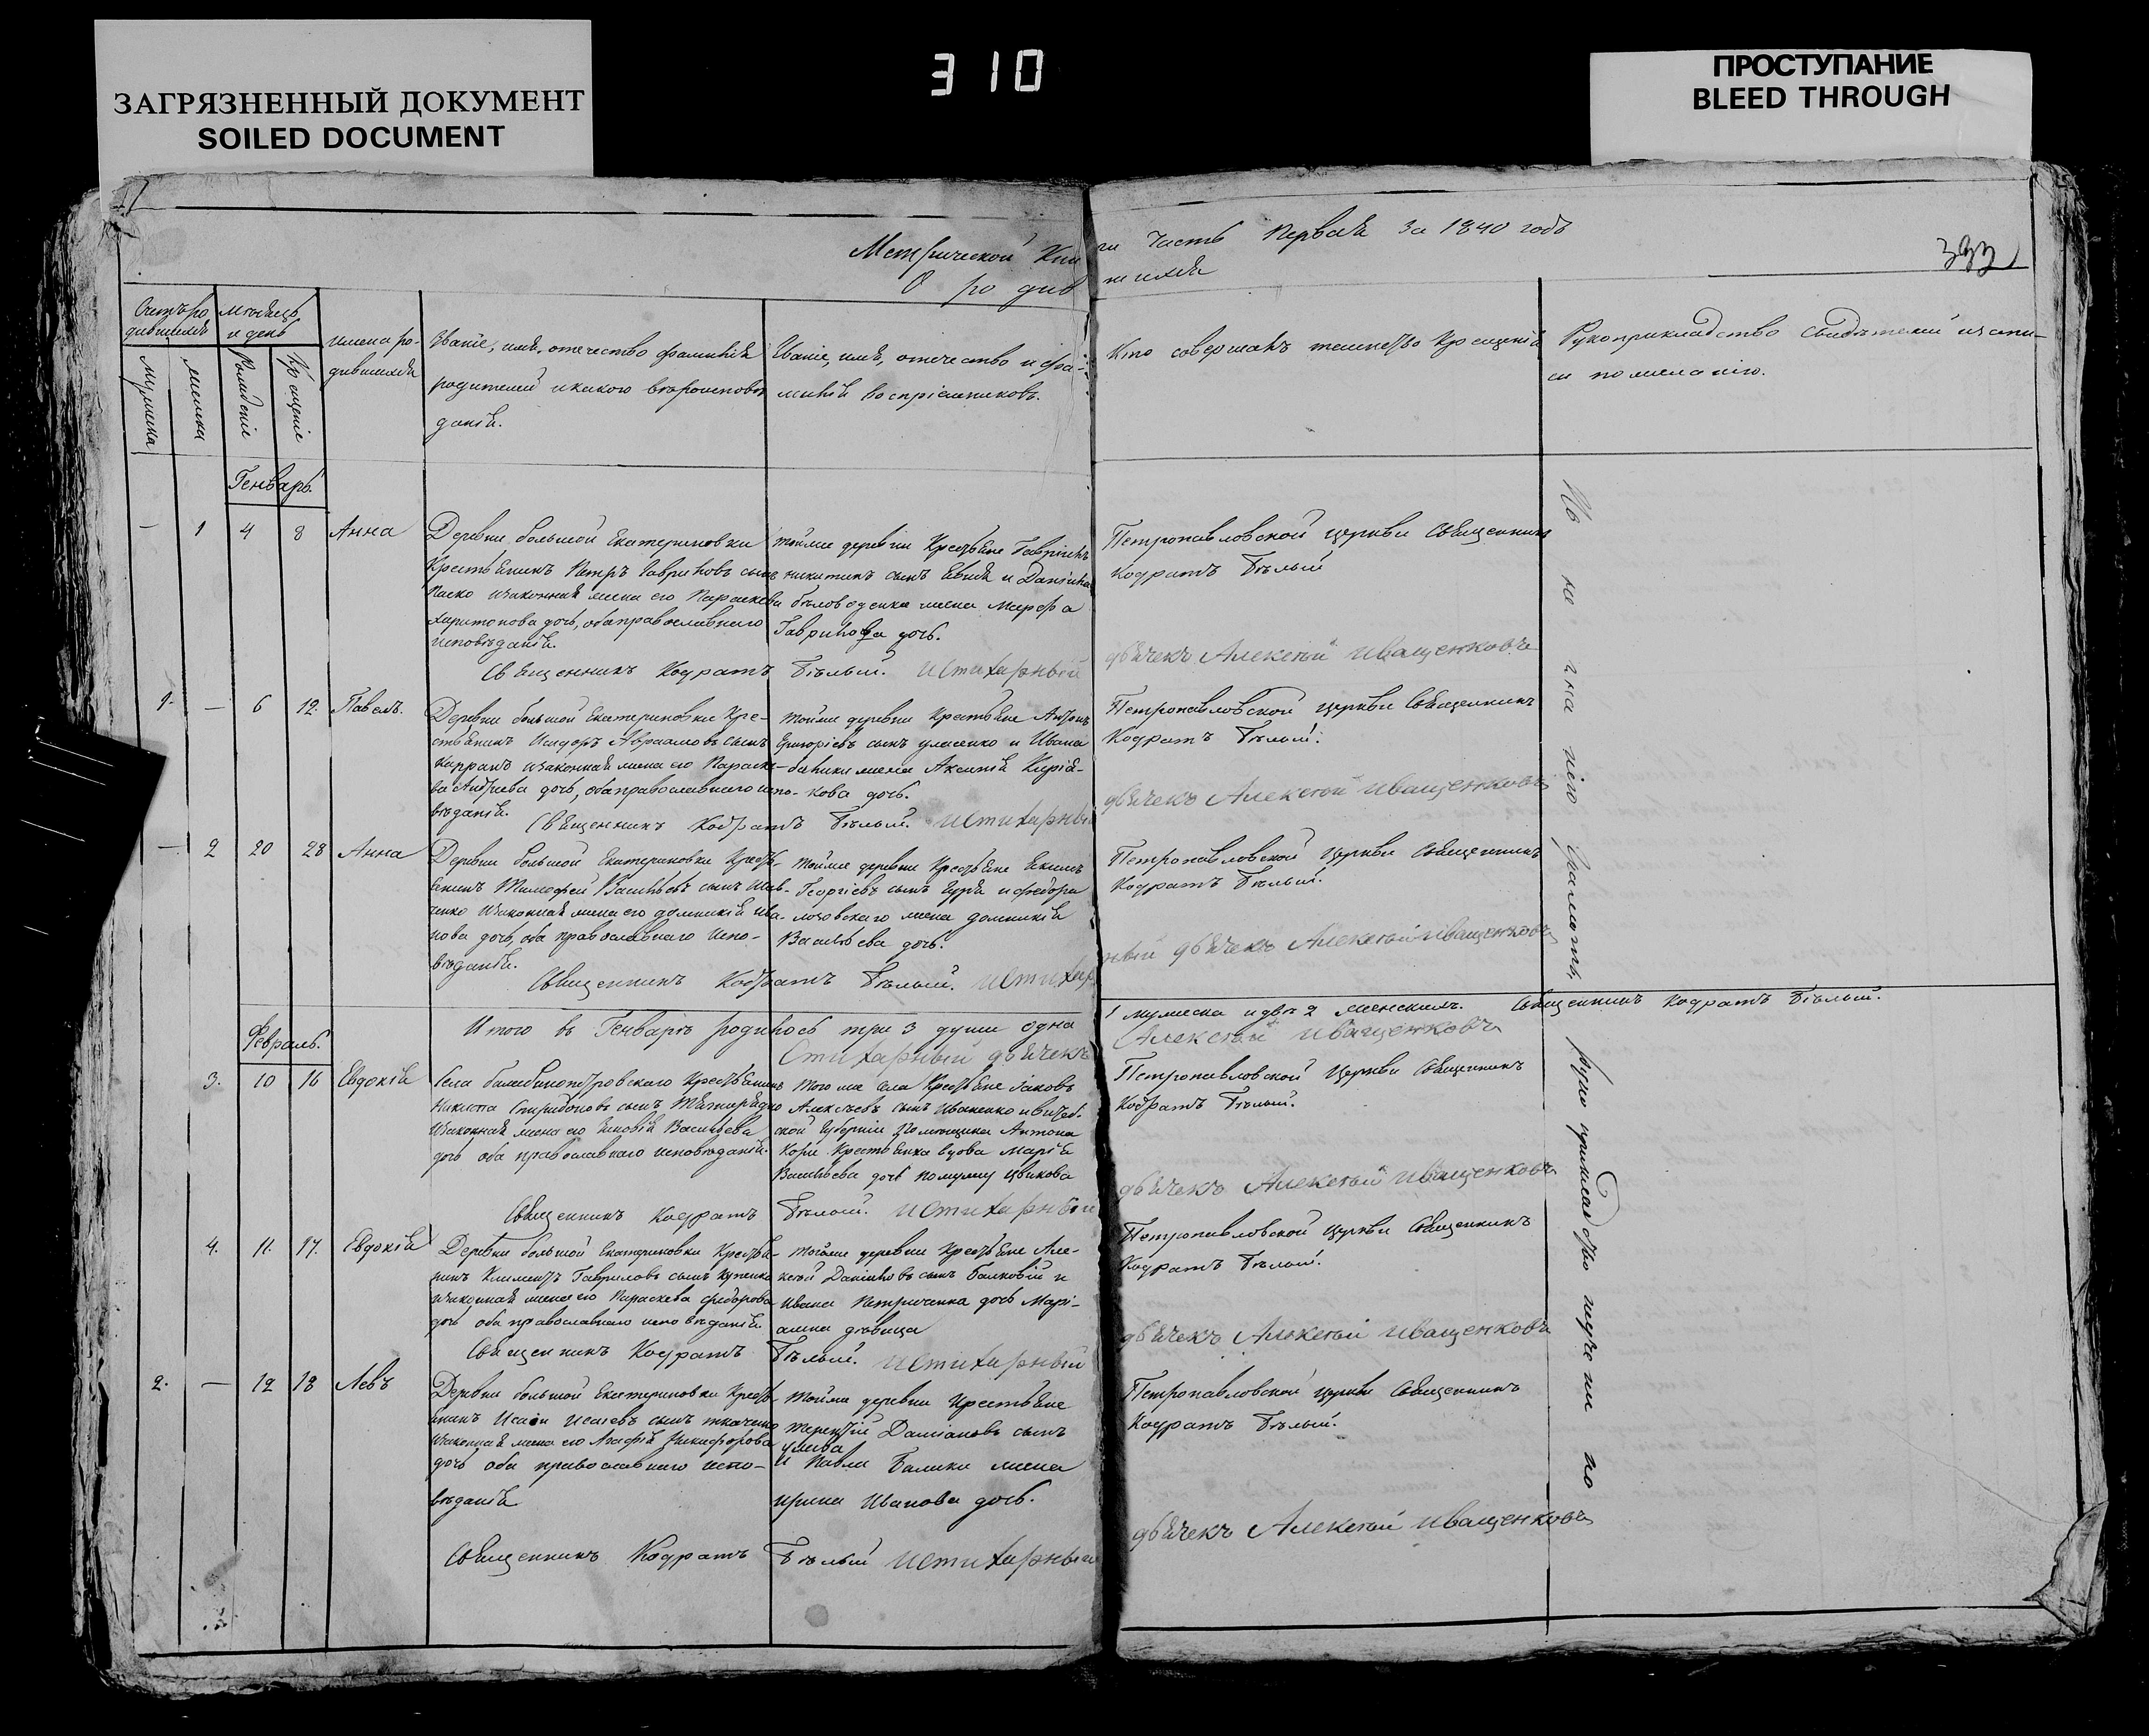 ЗАГРЯЗНЕННЫЙ ДОКУМЕНТ
SOILED DOCUMENT
310
ПРОСТУПАНИЕ
BLEED THROUGH
Метрической Книги Часть Первая За 1840 годъ
О родившихся
393
Счетъ родившихся
мужеска
женска
Мѣсяцъ и день
Рожденіе
Крещеніе
имена родившихся
Званіе, имя, отечество фамилія
родителей и какого вѣроисповѣ
данія.
Званіе, имя, отечество и фа-
милія воспріемниковъ.
Кто совершалъ таинство Крещенія
Рукоприкладство свидѣтелей записи
по желанію.
Генварь
— 1 4 8 Анна
Деревни большой Екатериновки
Крестьянинъ Петръ Гавриловъ сынъ
законная жена его Параскева
Харитонова дочь, оба православнаго
исповѣданія.
тойже деревни Крестьяне Гавріилъ
никитинъ сынъ и Даніила
жена Марфа
Гаврилова дочь.
Петропавловской церкви Священникъ
Кодратъ Бѣлый
Священникъ Кодратъ Бѣлый. и Стихарный дьячекъ Алексѣй Иващенковъ
1. — 6 12. Павелъ.
Деревни большой Екатериновки Кре-
стьянинъ Исидоръ Авраамовъ сынъ
законная жена его Параске-
ва Андреева дочь, оба православнаго испо-
вѣданія.
тойже деревни Крестьяне Антонъ
Григоріевъ сынъ и Ивана
жена Аксинія Кирія-
кова дочь.
Петропавловской церкви Священникъ
Кодратъ Бѣлый.
Священникъ Кодратъ Бѣлый. и Стихарный дьячекъ Алексѣй Иващенковъ
— 2 20 28 Анна
Деревни большой Екатериновки Кресть-
янинъ Тимофей Васильевъ сынъ Шев-
ченко законная жена его домникія Ива-
нова дочь, оба православнаго испо-
вѣданія.
тойже деревни Крестьяне Екимъ
Георгіевъ сынъ Гуря и федора
жена домникія
Васильева дочь.
Петропавловской церкви Священникъ
Кодратъ Бѣлый.
Священникъ Кодратъ Бѣлый. и Стихарный дьячекъ Алексѣй Иващенковъ
Итого въ Генварѣ родилось три 3 души одна 1 мужеска и двѣ 2 женскихъ. Священникъ Кодратъ Бѣлый.
Стихарный дьячекъ Алексѣй Иващенковъ
Февраль.
3. 10 16 Евдокія
Села Крестьянинъ
Никита Спиридоновъ сынъ
законная жена его Васильева
дочь оба православнаго исповѣданія.
того же села Крестьяне Іаковъ
Алексѣевъ сынъ Иваненко и витеб-
ской Губерніи Помѣщика Антона
Корж Крестьянка вдова Марія
Васильева дочь по мужу
Петропавловской Церкви Священникъ
Кодратъ Бѣлый.
Священникъ Кодратъ Бѣлый. и Стихарный дьячекъ Алексѣй Иващенковъ
4. 11. 17. Евдокія
Деревни большой Екатериновки Крестья-
нинъ Климентъ Гавриловъ сынъ
законная жена его Параскева федорова
дочь оба православнаго исповѣданія.
тойже деревни Крестьяне Але-
ксѣй Даніиловъ сынъ и
Ивана Петриченка дочь Марі-
анна дѣвица
Петропавловской церкви Священникъ
Кодратъ Бѣлый.
Священникъ Кодратъ Бѣлый. и Стихарный дьячекъ Алексѣй Иващенковъ
2. — 12 18 Левъ
Деревни большой Екатериновки Кресть-
янинъ Исаія Исаіевъ сынъ ткаченко
законная жена его Агафія Никифорова
дочь оба православнаго испо-
вѣданія
тойже деревни Крестьяне
терентій Даміановъ сынъ
и Павла Балики жена
ирина Иванова дочь.
Петропавловской церкви Священникъ
Кодратъ Бѣлый.
Священникъ Кодратъ Бѣлый и Стихарный дьячекъ Алексѣй Иващенковъ